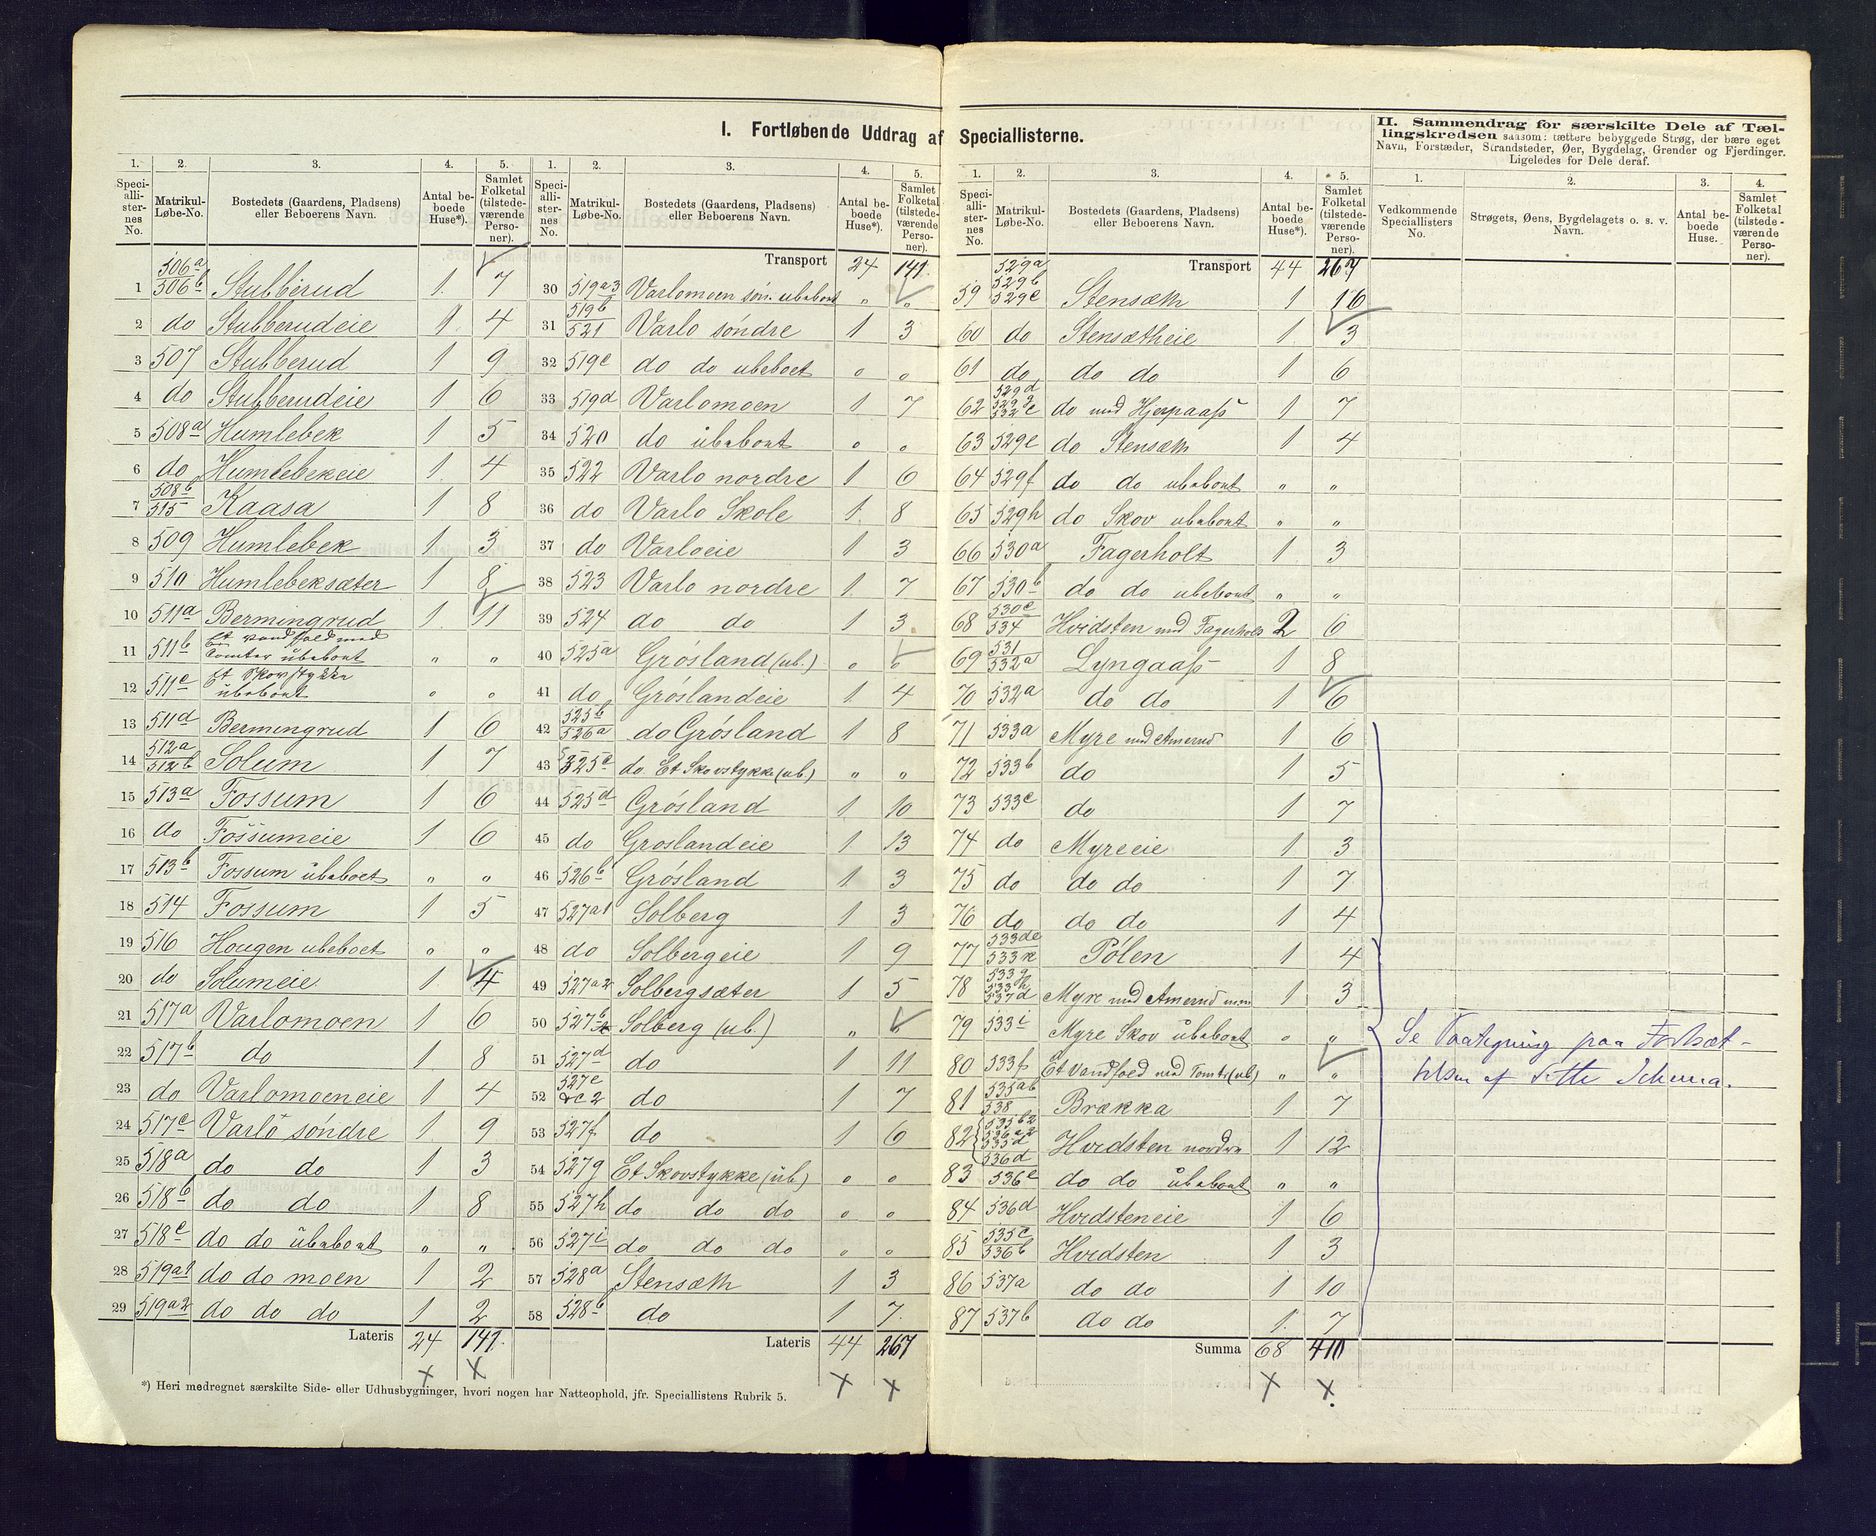 I. Fortløbende Uddrag af Speciallisterne.
1. 2. 3. 4. 5.
Speciallisternes No. Matrikul-Løbe-No. Bostedets (Gaardens, Pladsens) eller Beboerens Navn. Antal beboede Huse*). Samlet Folketal (tilstedeværende Personer).
1 506a 506b Stubberud 1 7
2 do Stubberudeie 1 4
3 507 Stubberud 1 9
4 do Stubberudeie 1 6
5 508a Humlebek 1 5
6 do Humlebekeie 1 4
7 508b 515 Kaasa 1 8
8 509 Humlebek 1 3
9 510 Humlebeksæter 1 8
10 511a Bermingrud 1 11
11 511b Et vandfald med Tomter übeboet " "
12 511c et Skovstykke übeboet " "
13 511d Bermingrud 1 6
14 512a 512b Solum 1 7
15 513a Fossum 1 6
16 do Fossumeie 1 6
17 513b Fossum übeboet " "
18 514 Fossum 1 5
19 516 Hougen ubeboet " "
20 do Solumeie 1 4
21 517a Varlomoen 1 6
22 517b do 1 8
23 do Varlomoeneie 1 4
24 517c Varlo søndre 1 9
25 518a do do 1 3
26 518b do do 1 8
27 518c do do übeboet " "
28 519a1 do do moen 1 2
29 519a2 do do do 1 2
Lateris 24 141
*) Heri medregnet særskilte Side- eller Udhusbygninger, hvori nogen har Natteophold, jfr. Speciallistens Rubrik 5.
1. 2. 3. 4. 5.
Speciallisternes No. Matrikul-Løbe-No. Bostedets (Gaardens, Pladsens) eller Beboerens Navn. Antal beboede Huse*). Samlet Folketal (tilstedeværende Personer).
Transport 24 141
30 519a3 Varlomoen søn. übeboet " "
31 519b 521 Varlo søndre 1 3
32 519c do do ubeboet " "
33 519d Varlomoen 1 7
34 520 do übeboet " "
35 522 Varlo nordre 1 6
36 do Varlo Skole 1 8
37 do Varloeie 1 3
38 523 Varlo nordre 1 7
39 524 do do 1 3
40 525a Grøsland (ub.) " "
41 do Grøslandeie 1 4
42 525b 526a do Grøsland 1 8
43 525c do Et Skovstykke (ub.) " "
44 525d Grøsland 1 10
45 do Grøslandeie 1 13
46 526b Grøsland 1 3
47 527a1 Solberg 1 3
48 do Solbergeie 1 9
49 527a2 Solbergsæter 1 5
50 527b Solberg (ub.) "
51 527d do 1 11
52 527c & c2 do 1 7
53 527f do 1 6
54 527g Et Skovstykke (üb.) " "
55 527h do do do " "
56 527i do do do " "
57 528a Stensæth 1 3
58 528b do 1 7
Lateris 44 267
1. 2. 3. 4. 5.
Speciallisternes No. Matrikul-Løbe-No. Bostedets (Gaardens, Pladsens) eller Beboerens Navn. Antal beboede Huse*). Samlet Folketal (tilstedeværende Personer).
Transport 44 267
59 529a 529b 529c Stensæth 1 16
60 do Stensætheie 1 3
61 do do do 1 6
62 529d 529g 532c do med Hjerpaass 1 7
63 529e do Stensæth 1 4
64 529f do do übeboet " "
65 529h do Skov übeboet " "
66 530a Fagerholt 1 3
67 530b do do ubeboet " "
68 530c 534 Hvidsten med Fagerholt 2 6
69 531 532a Lyngaass 1 8
70 532a do do 1 6
71 533a Myre med Amerud 1 6
72 533b do 1 5
73 533c do 1 7
74 do Myreeie 1 3
75 do do do 1 7
76 do do do 1 4
77 533de 533k Pølen 1 4
78 533g 533h 537d Myre med Amerud 1 3
79 533i Myre Skov übeboet " "
80 533f Et Vandfald med Tomt (ub) " "
81 535ab 538 Brækka 1 7
82 535b2 536a2 535d 536d Hvidsten nordre 1 12
83 536c do do übeboet " "
84 536d Hvidsteneie 1 6
85 535c 536b Hvidsten 1 3
86 537a do do 1 10
87 537b do do 1 7
Summa 68 410
II. Sammendrag for særskilte Dele af Tællingskredsen saasom: tættere bebyggede Strøg, der bære eget Navn, Forstæder, Strandsteder, Øer, Bygdelag, Grender og Fjerdinger. Ligeledes for Dele deraf.
1. 2. 3. 4.
Vedkommende Speciallisters No. Strøgets, Øens, Bygdelagets o. s. v. Navn. Antal beboede Huse. Samlet Folketal (tilstedeværende Personer).
Se Paategning paa Fortsæt-
telsen af dette Schema.